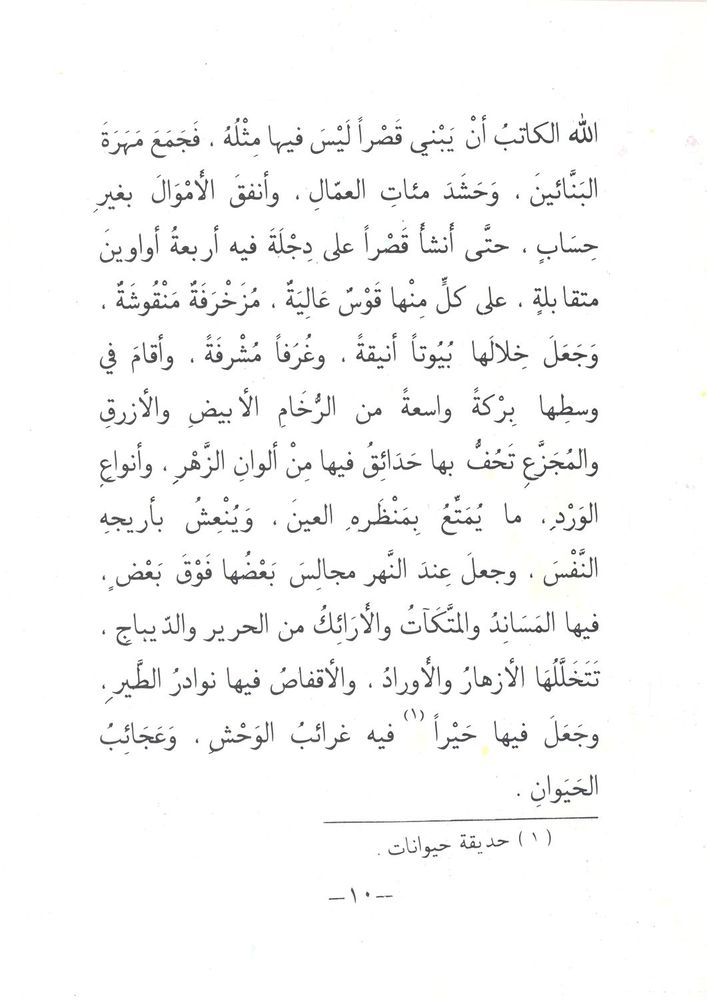 الله الكاتبُ أنْ يَبْني قَصْراً لَيْسَ فيها مِثْلُهُ ، فَجَمَعَ مَهَرَةَ
البَنَّائينَ ، وَحَشَدَ مئاتِ العمّالِ ، وأنفقَ الأَمْوَالَ بغيرِ
حِسَابٍ ، حتَّى أَنشأَ قَصْراً على دِجْلَةَ فيه أربعةُ أواوينَ
متقابلةٍ ، على كلٍّ مِنْها قَوْسٌ عَالِيَةٌ ، مُزَخْرَفَةٌ مَنْقُوشَةٌ ،
وَجَعَلَ خِلالَها بُيُوتاً أنيقةً ، وغُرَفاً مُشْرفَةً ، وأقامَ في
وسطِها بِرْكَةً واسعةً من الرُّخَامِ الأبيضِ والأزرقِ
والمُجَزَّعِ تَحُفُّ بها حَدَائِقُ فيها مِنْ ألوانِ الزَّهْرِ ، وأنواعِ
الوَرْدِ ، ما يُمَتِّعُ بِمَنْظَرِهِ العينَ ، وَيُنْعِشُ بأريجهِ
النَّفْسَ ، وجعلَ عِندَ النَّهر مجالِسَ بَعْضُها فَوْقَ بَعْضٍ ،
فيها المَسَانِدُ والمتَّكَآتُ والأَرَائِكُ من الحرير والدّيباجِ ،
تَتَخَلَّلُهَا الأزهارُ والأورادُ ، والأقفاصُ فيها نوادرُ الطَّيرِ ،
وجَعَلَ فيها حَيْراً (١) فيه غرائبُ الوَحْشِ ، وَعَجَائِبُ
الحَيَوانِ .
(١) حديقة حيوانات .
—١٠—